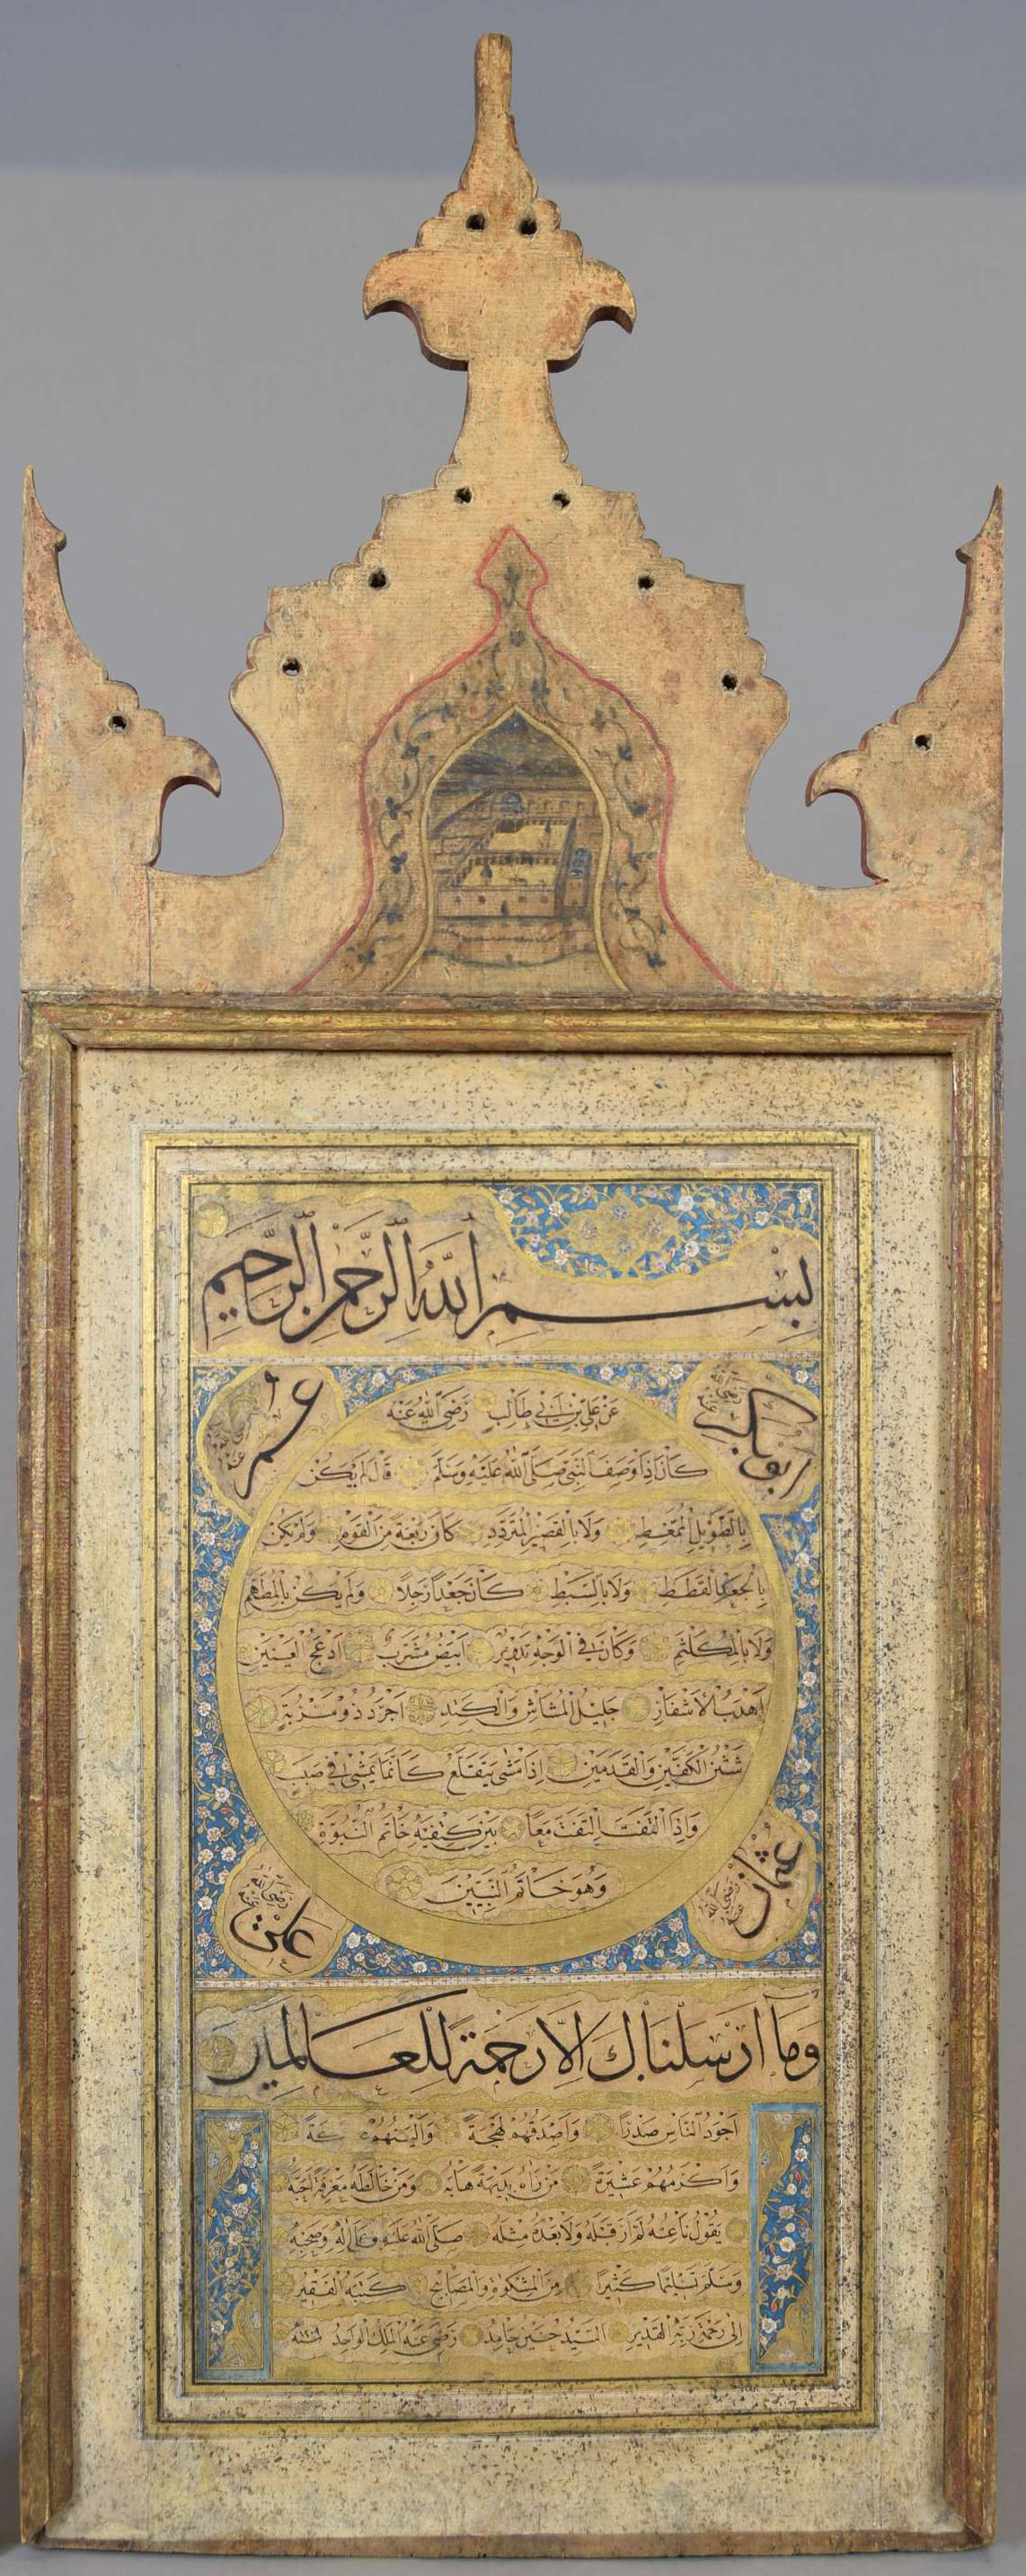 بسم الله الرحمن الرحيم
ابوبكر رضي الله عنه
عمر رضي الله عنه
عن علي بن ابي طالب رضي الله عنه
كان اذا وصف النبي صلى الله عليه وسلم قال لم يكن
بالطويل الممغط ولا بالقصير المتردد كان ربعة من القوم ولم يكن
بالجعد القطط ولا بالسبط كان جعدا رجلا ولم يكن بالمطهم
ولا بالمكلثم وكان في الوجه تدوير ابيض مشرب ادعج العينين
اهدب الاشفار جليل المشاش والكتد اجرد ذو مسربة
شثن الكفين والقدمين اذا مشى يتقلع كانما يمشي في صبب
واذا التفت التفت معا بين كتفيه خاتم النبوة
وهو خاتم النبيين
عثمان رضي الله عنه
علي رضي الله عنه
وما ارسلناك الا رحمة للعالمين
اجود الناس صدرا واصدقهم لهجة والينهم
واكرمهم عشيرة من راه بديهة هابه ومن خالطه معرفة احبه
يقول ناعته لم ار قبله ولا بعده مثله صلى الله عليه وعلى اله وصحبه
وسلم تسليما كثيرا من المشكوة والمصابيح كتبه الفقير
الى رحمة ربه القدير السيد حسين حامد رضي عنه الملك الواحد